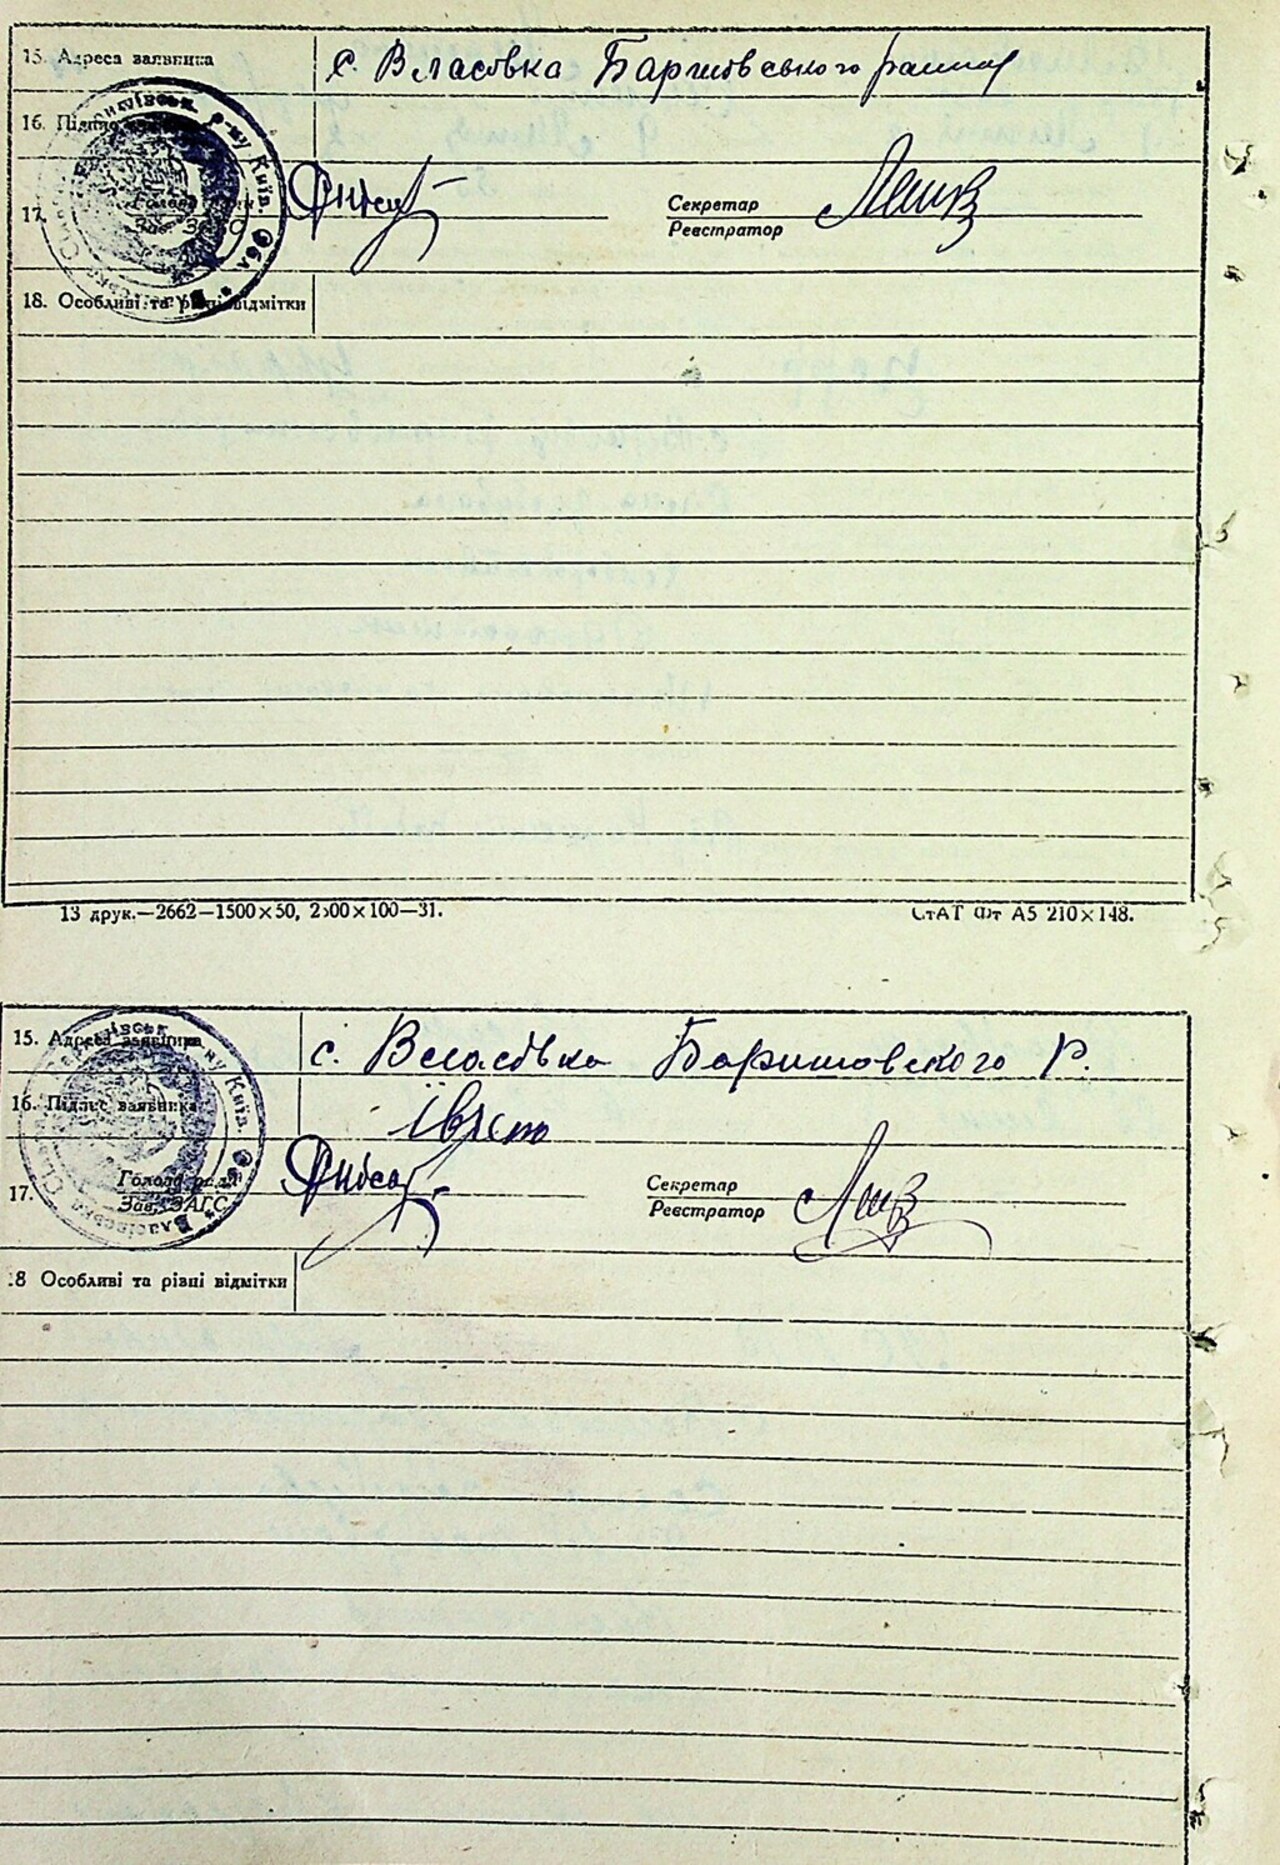 15. Адреса заявника
с. Власовка Баришовського району
16. Підпис
17.
Голова
Зав. ЗАГС
Секретар
Реєстратор
18. Особливі та різні відмітки
13 друк.—2662—1500×50, 2500×100—31.
СтАТ Фт А5 210×148.
15. Адреса заявника
с. Власовка Баришовского р.
16. Підпис заявника
17.
Голова ради
Зав. ЗАГС
Секретар
Реєстратор
18 Особливі та різні відмітки